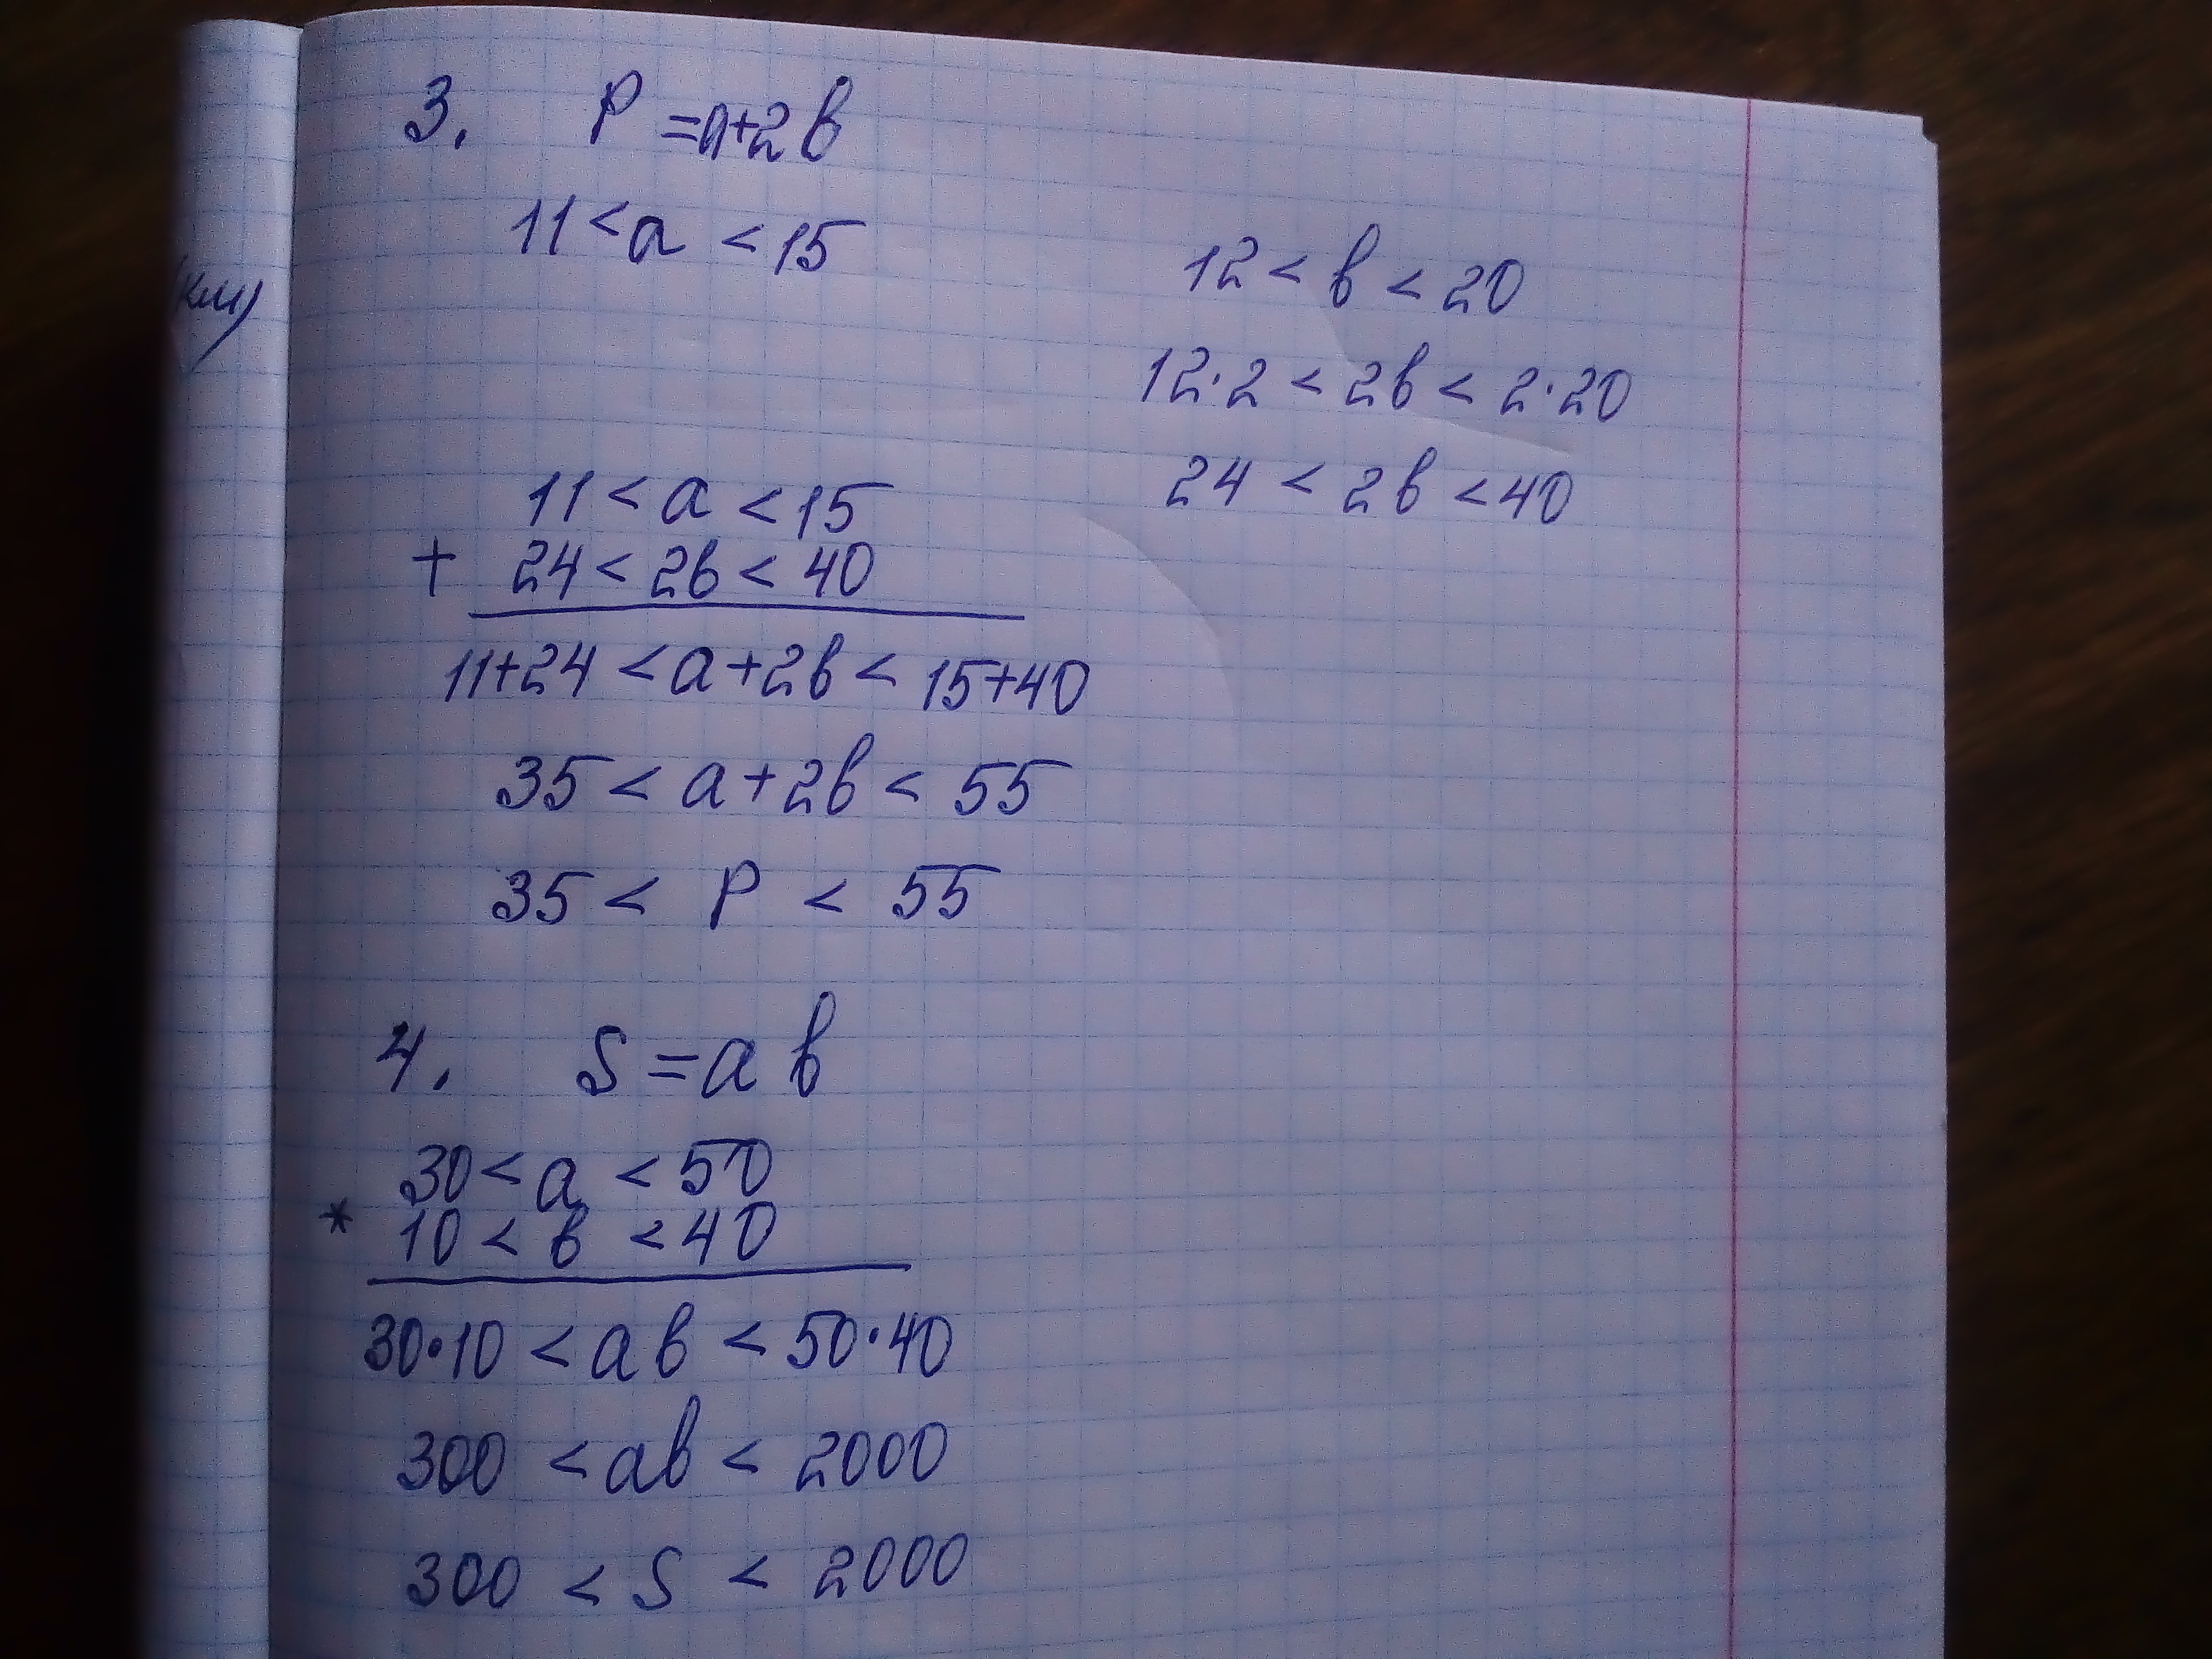 3. P = a+2b
11 < a < 15
12 < b < 20
12·2 < 2b < 2·20
24 < 2b < 40
11 < a < 15
+ 24 < 2b < 40
11+24 < a+2b < 15+40
35 < a+2b < 55
35 < P < 55
4. S = a b
30 < a < 50
* 10 < b < 40
30·10 < a b < 50·40
300 < ab < 2000
300 < S < 2000